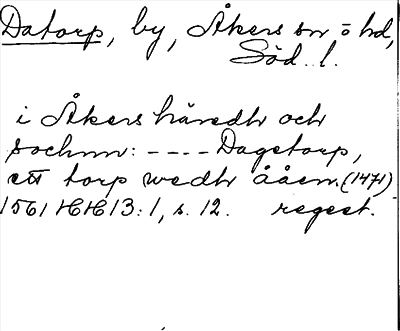 Datorp, by, Åkers sn o hd,
Söd. l.
i Åkers häredh och
sochnn: ---- Dagetorp,
ett torp wedh ååen. (1471)
1561 HH 13:1, s. 12. regest.